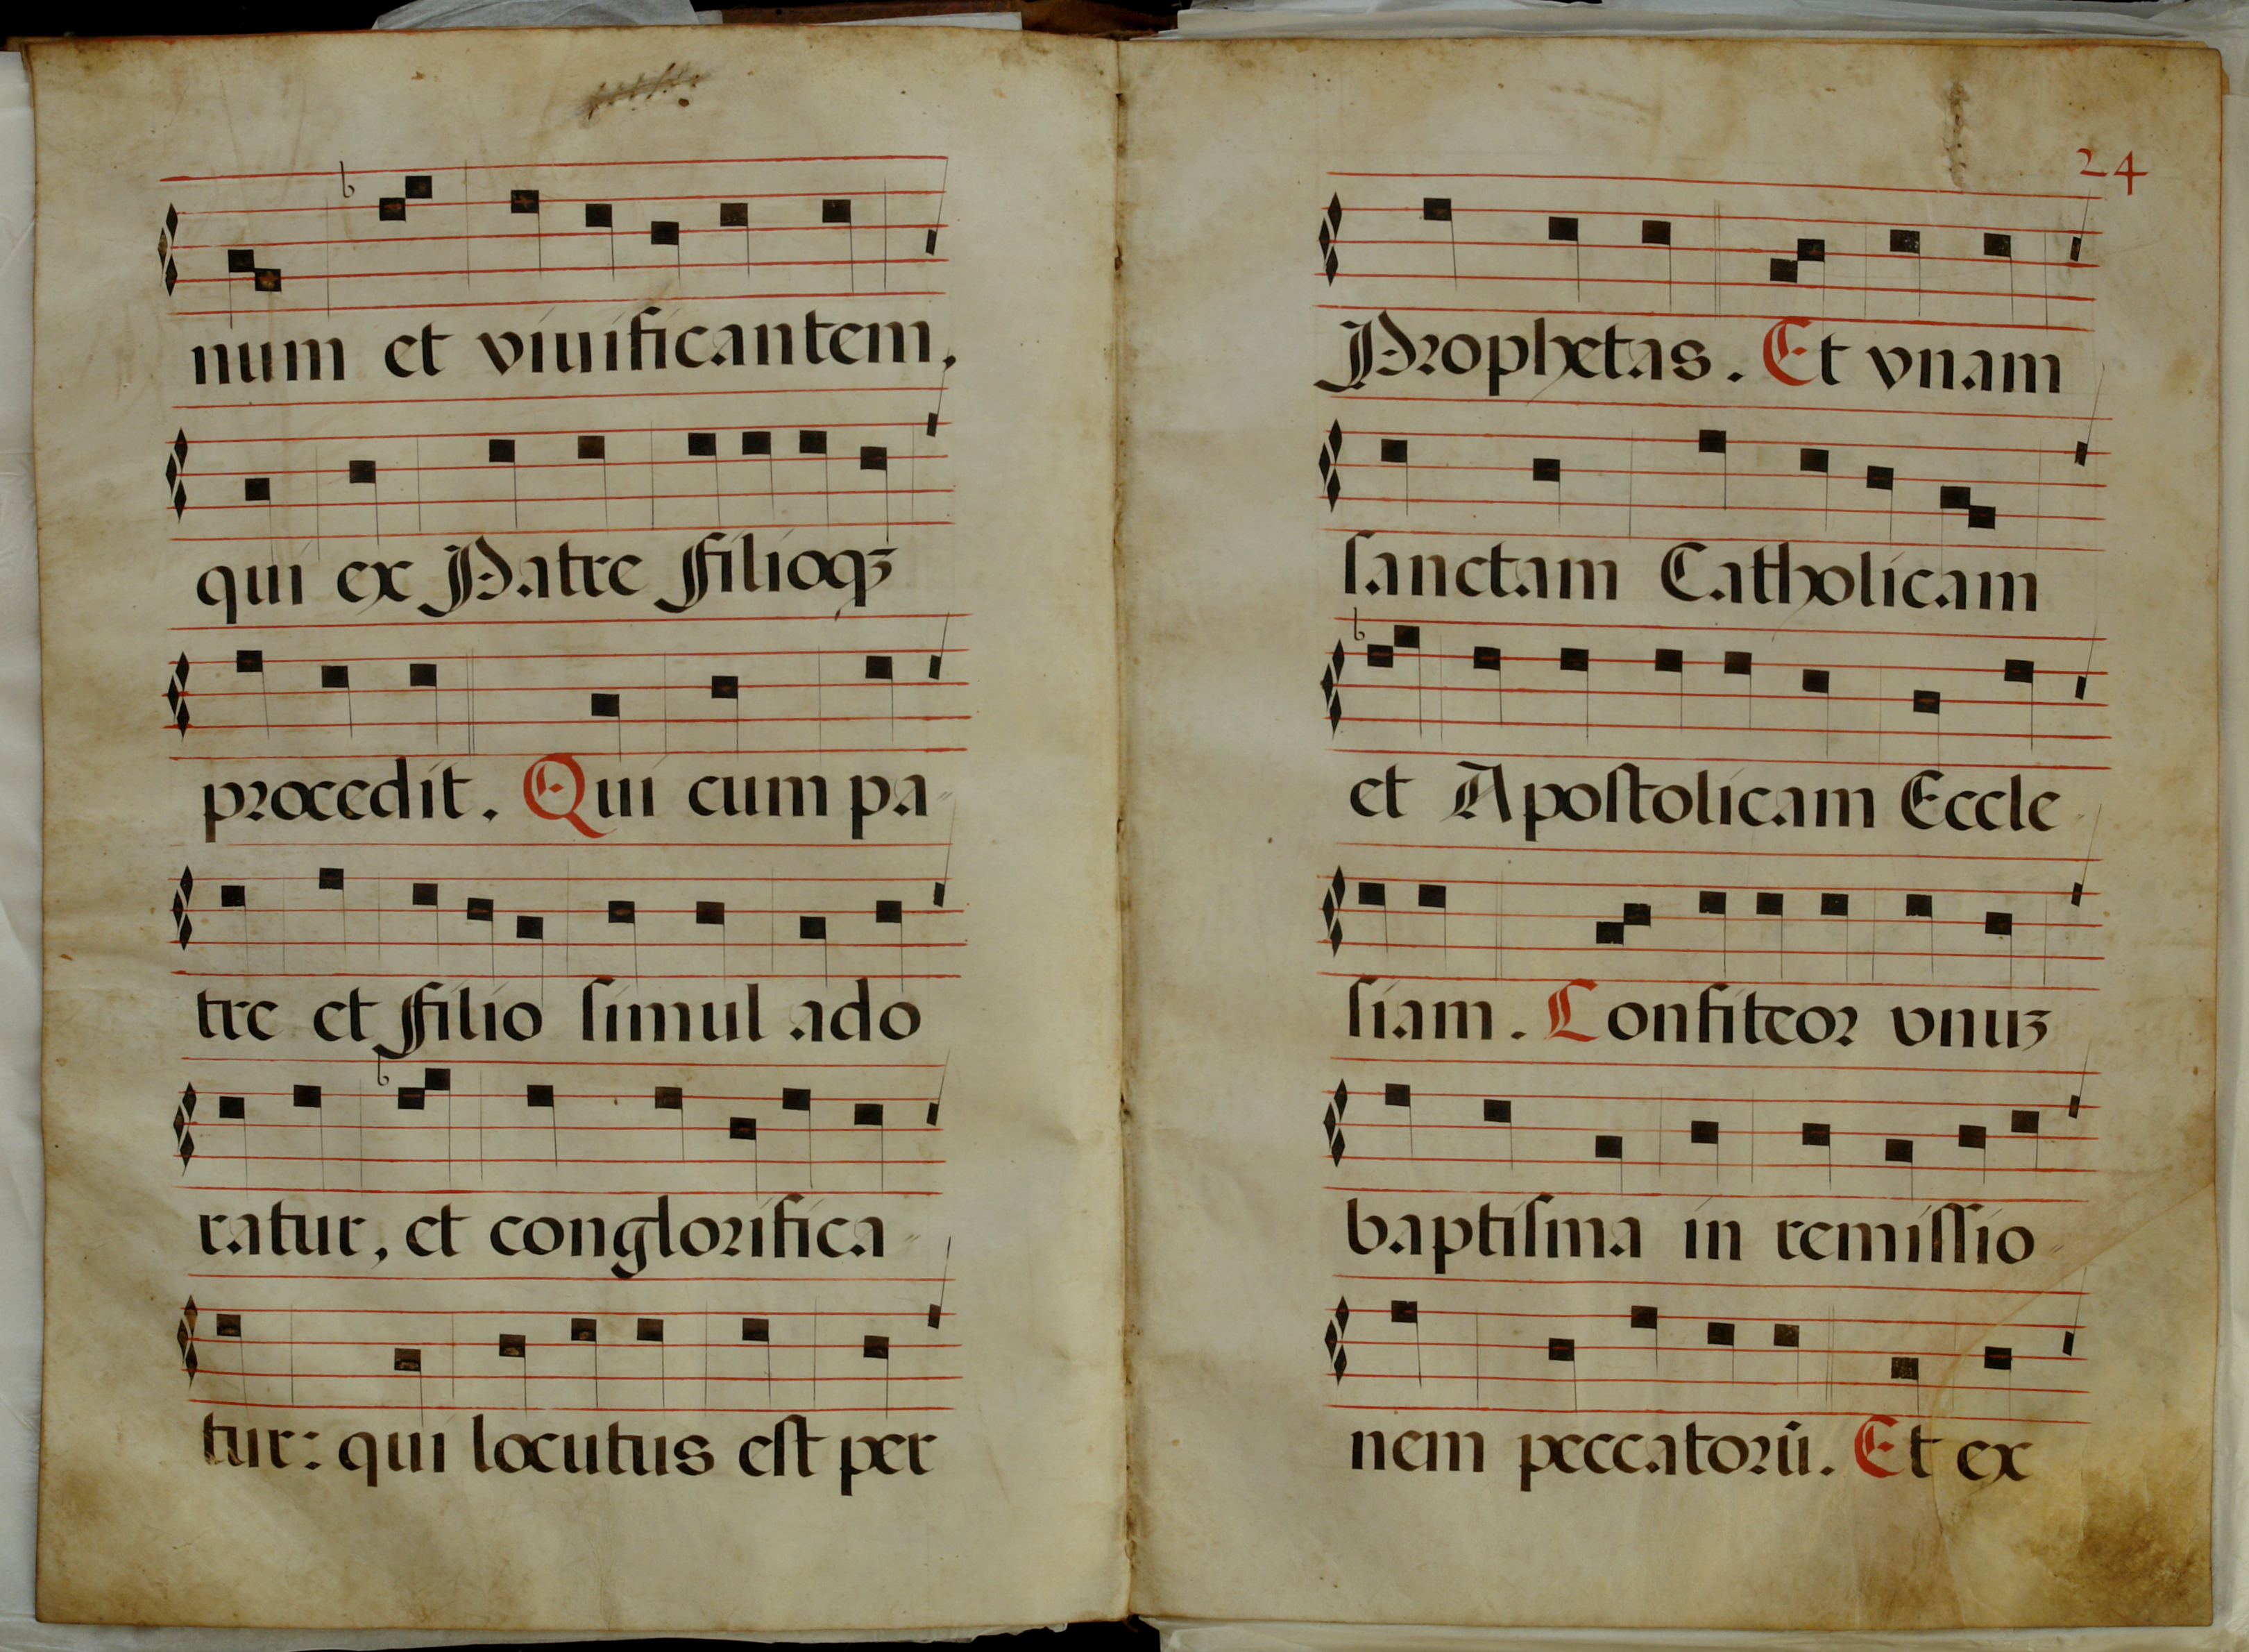 num et viuificantem,
qui ex Patre Filioqꝫ
procedit. Qui cum pa
tre et Filio ſimul ado
ratur, et conglorifica
tur: qui locutus eſt per
24
Prophetas. Et vnam
ſanctam Catholicam
et Apoſtolicam Eccle
ſiam. Confiteor vnuꝫ
baptiſma in remiſſio
nem peccatorū. Et ex